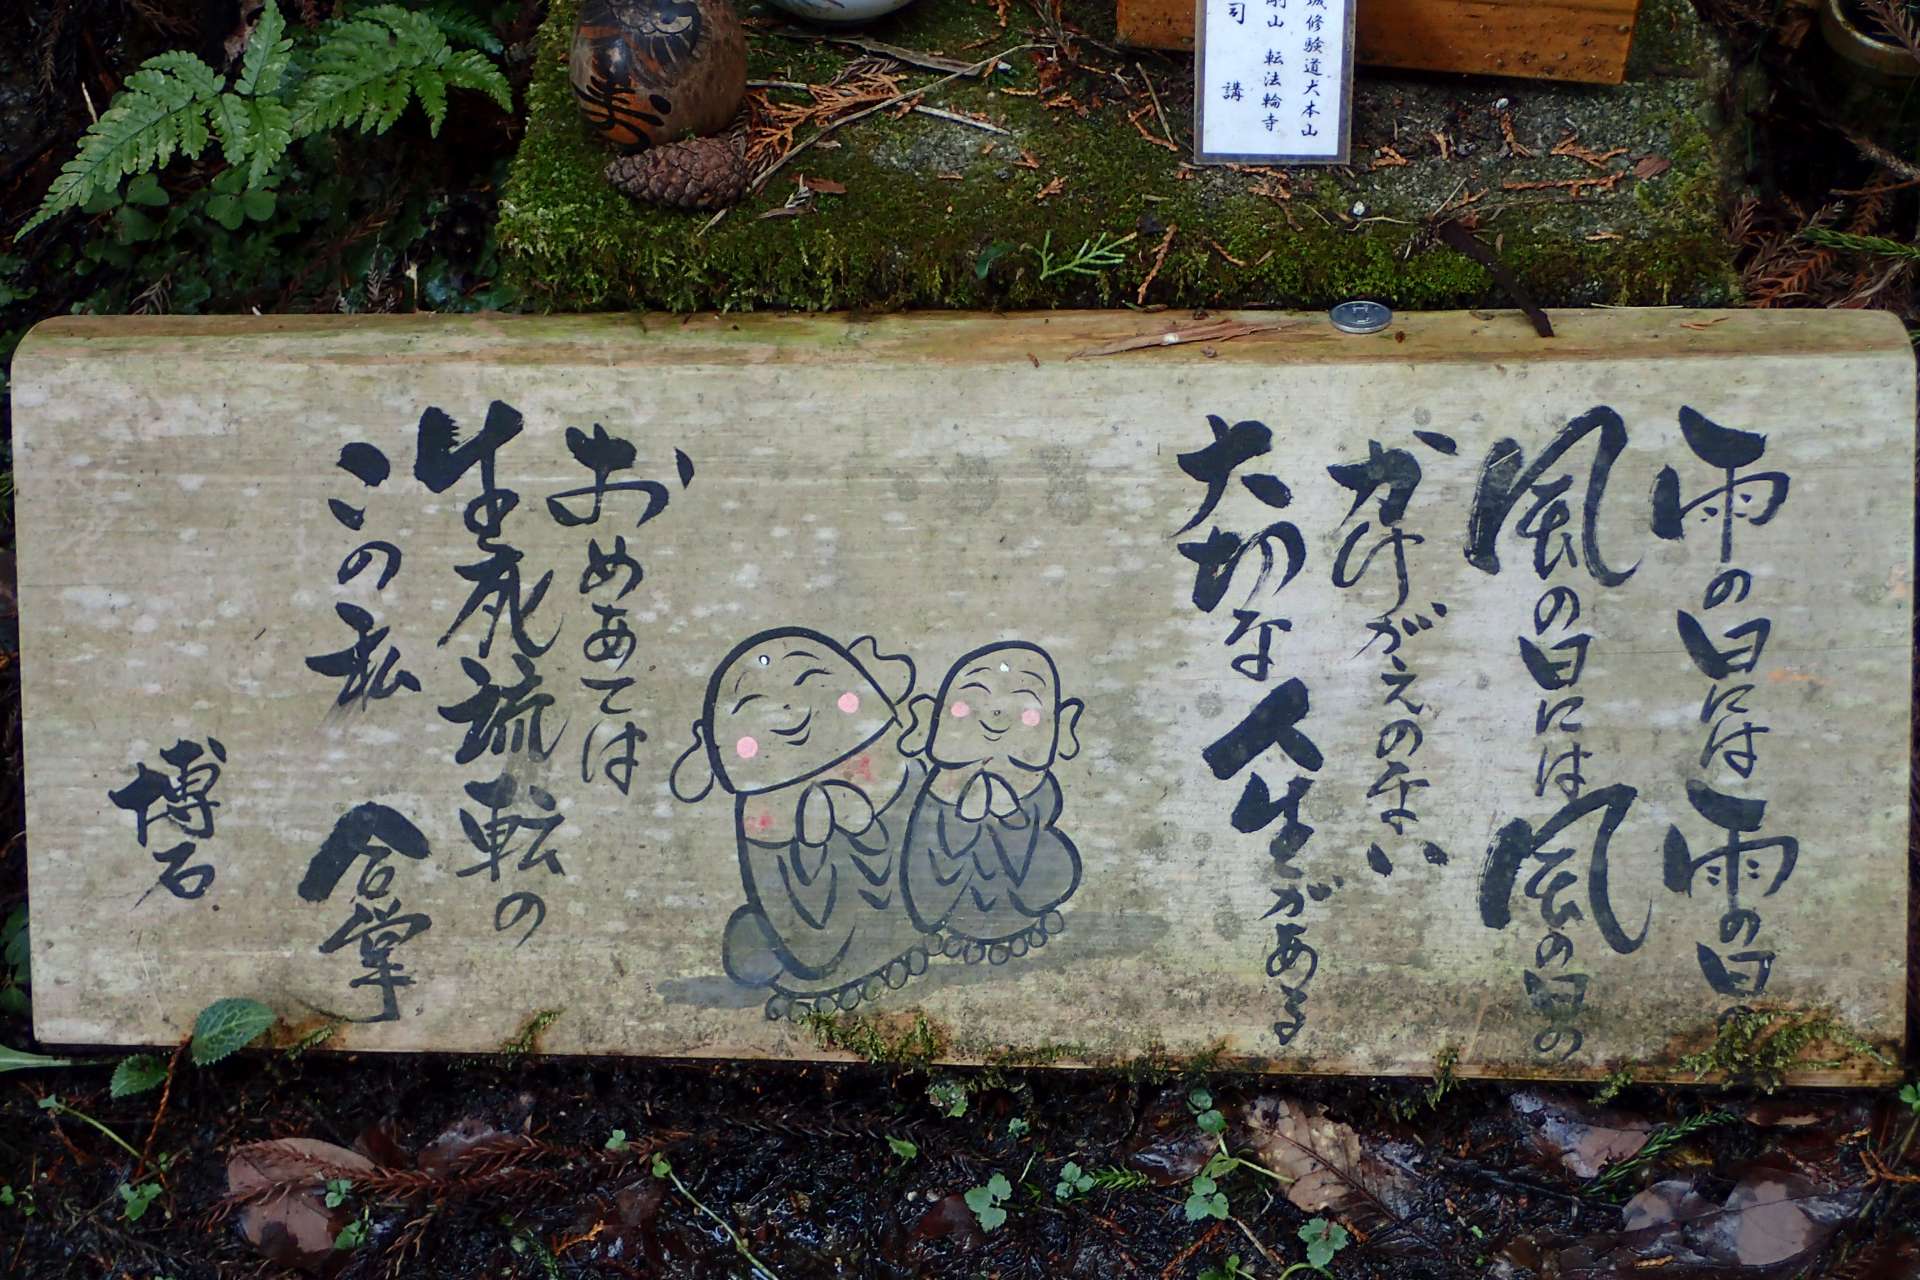 寿
城修験道大本山
剛山 転法輪寺
司 講
雨の日には雨の日の
風の日には風の日の
かけがえのない
大切な人生がある
おめあては
生死流転の
この私 合掌
博石